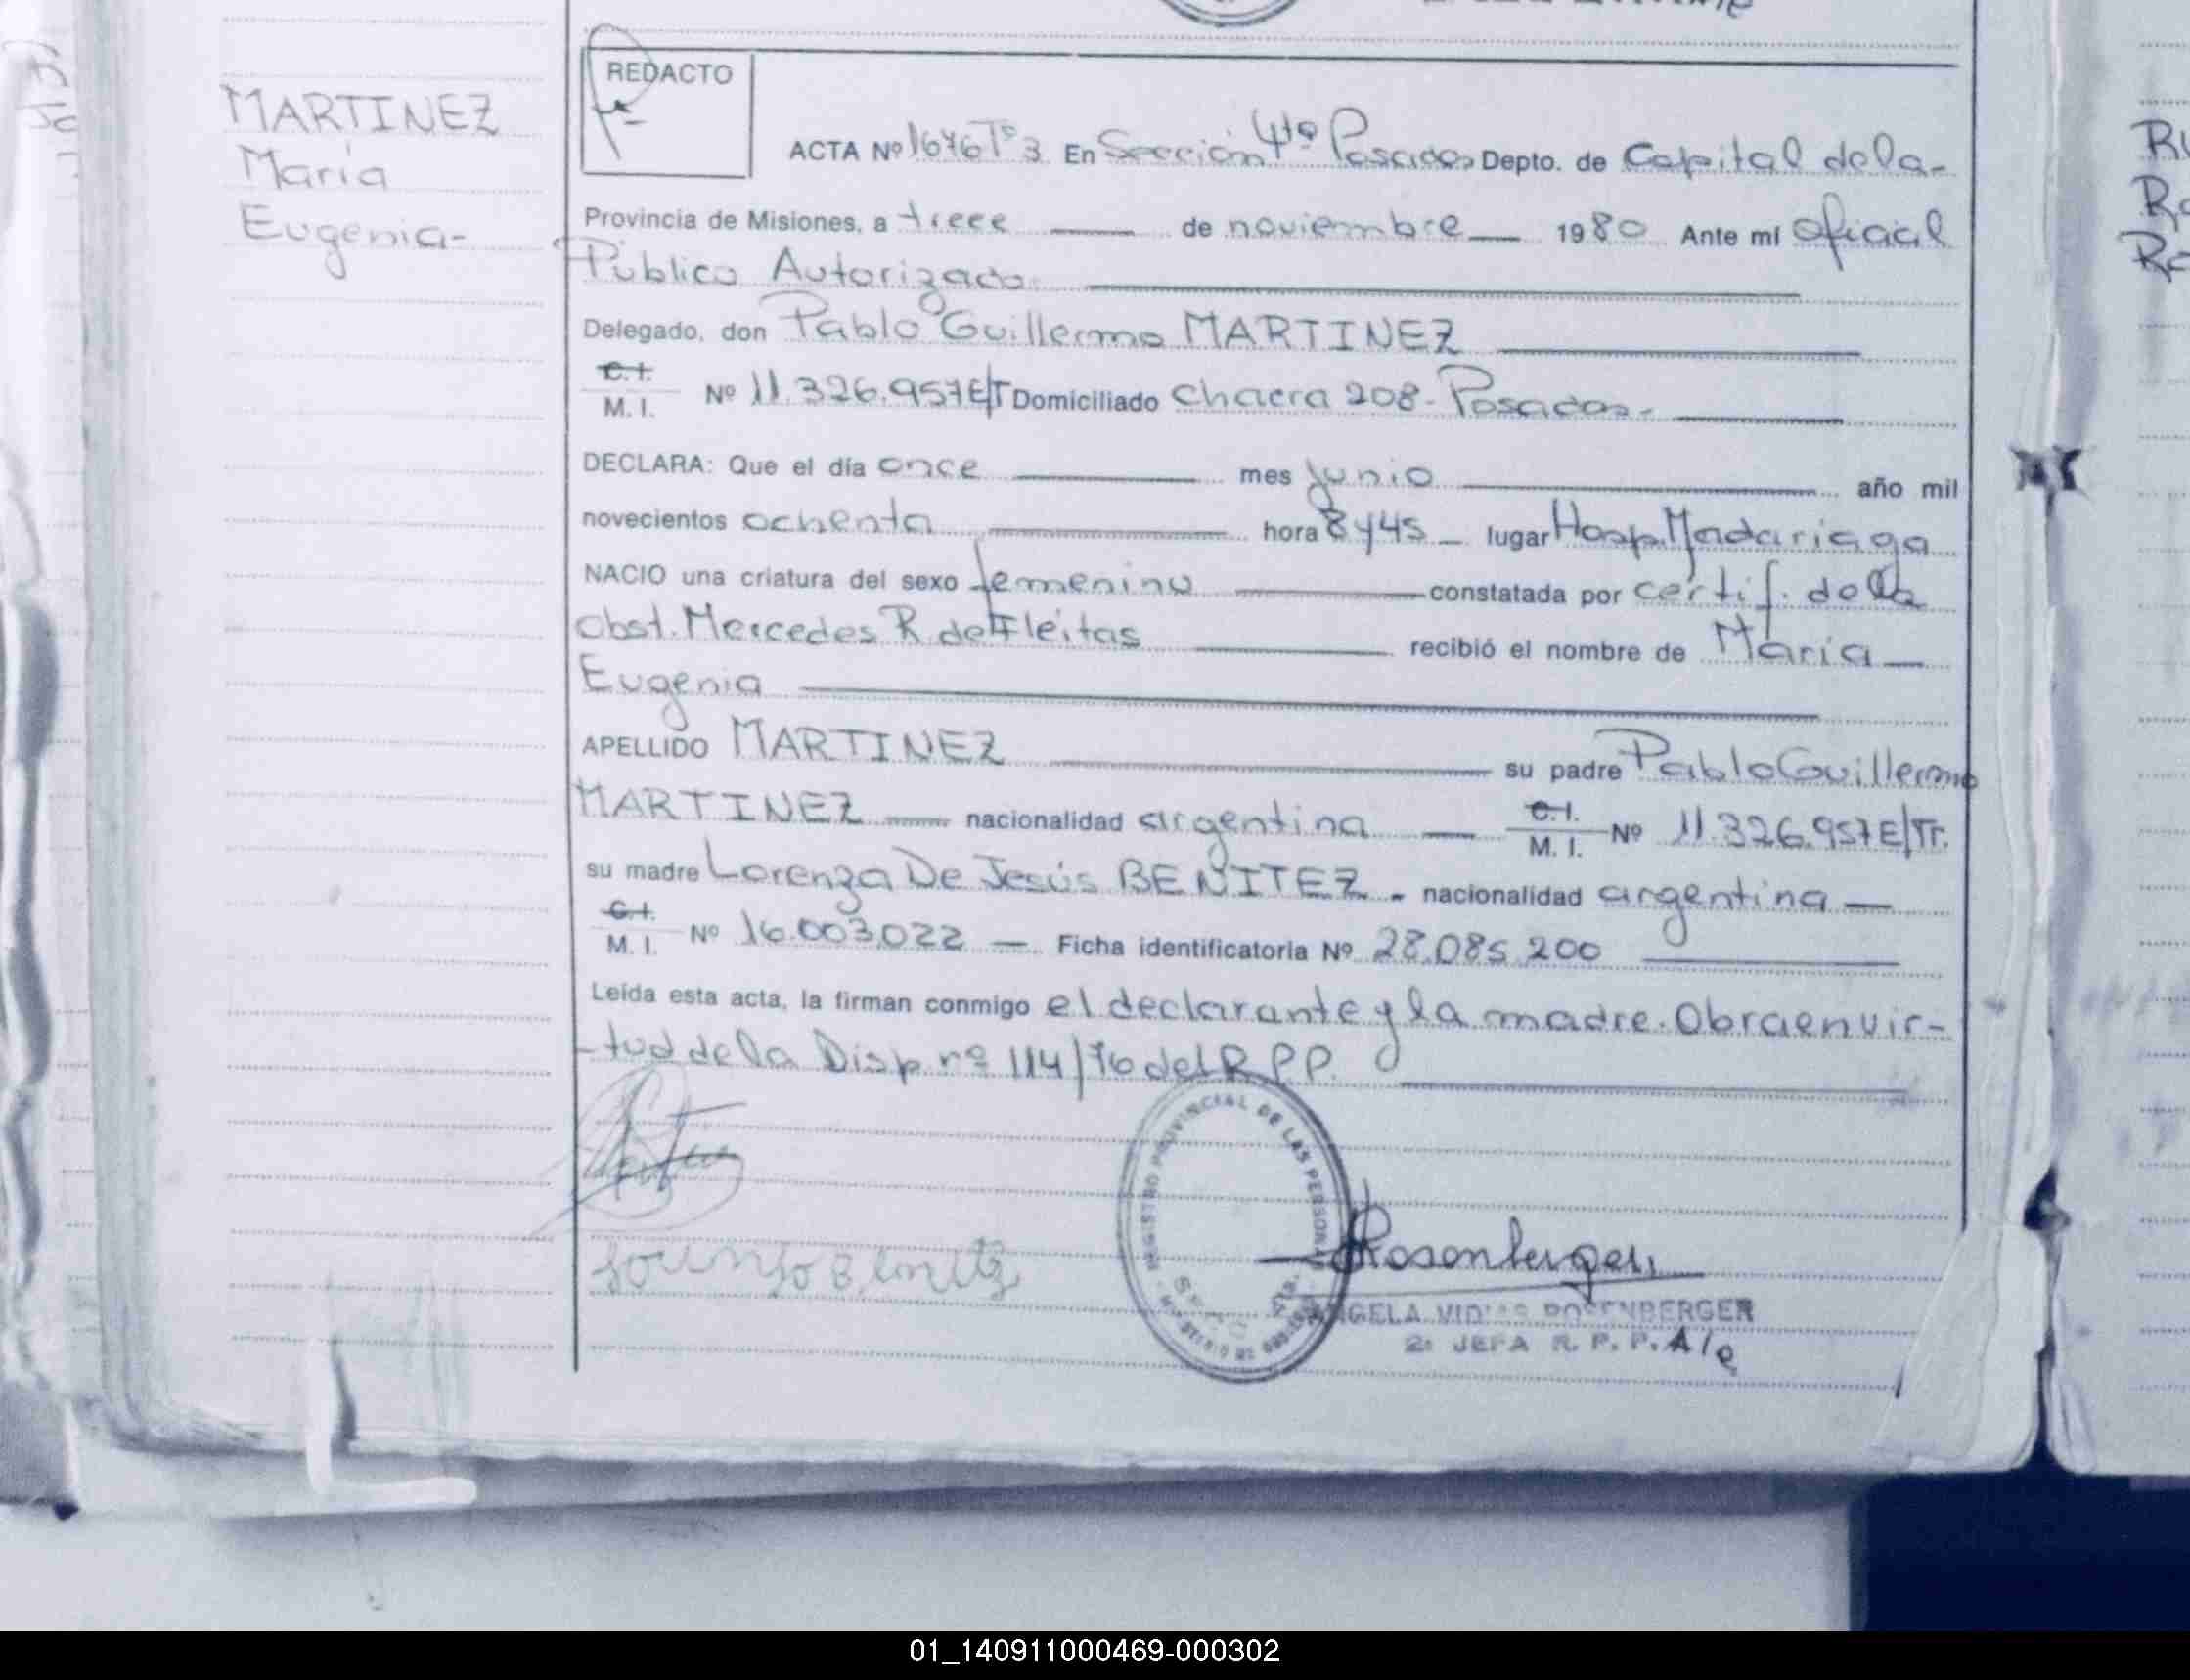 MARTINEZ
María
Eugenia-
REDACTO
ACTA Nº 1676 Tº 3 En Sección 4ta Posadas Depto. de Capital de la-
Provincia de Misiones, a trece de noviembre 1980 Ante mí Oficial
Público Autorizado.
Delegado, don Pablo Guillermo MARTINEZ
C.I.
M. I. Nº 11.326.957E/T Domiciliado Chacra 208- Posadas.-
DECLARA: Que el día once mes Junio año mil
novecientos ochenta hora 8 y 45 lugar Hosp. Madariaga
NACIO una criatura del sexo femenino constatada por certif. de la
Obst. Mercedes R. de Fleitas recibió el nombre de María
Eugenia
APELLIDO MARTINEZ su padre Pablo Guillermo
MARTINEZ nacionalidad argentina C.I. M. I. Nº 11.326.957E/Tr.
su madre Lorenza De Jesús BENITEZ - nacionalidad argentina
C.I.
M. I. Nº 16.003.022 Ficha identificatoria Nº 28.085.200
Leída esta acta, la firman conmigo el declarante y la madre. Obra en vir-
-tud de la Disp. nº 114/76 del R.P.P.
REGISTRO PROVINCIAL DE LAS PERSONAS
Rosenberger
ANGELA ROSENBERGER
2ª JEFA R. P. P. A/c
01_140911000469-000302